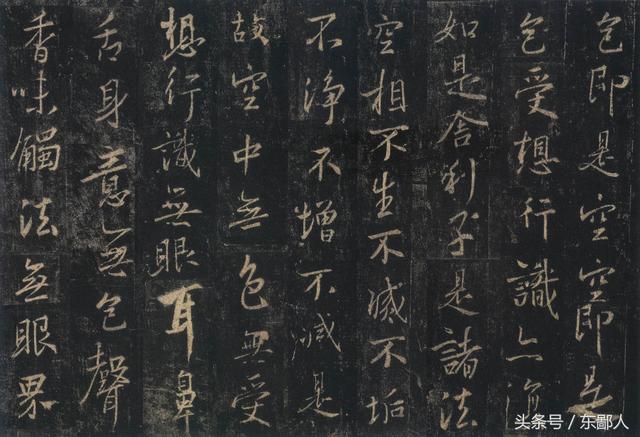 色即是空空即是
色受想行識亦復
如是舍利子是諸法
空相不生不滅不垢
不淨不增不減是
故空中無色無受
想行識無眼耳鼻
舌身意無色聲
香味觸法無眼界
头条号 / 东鄙人